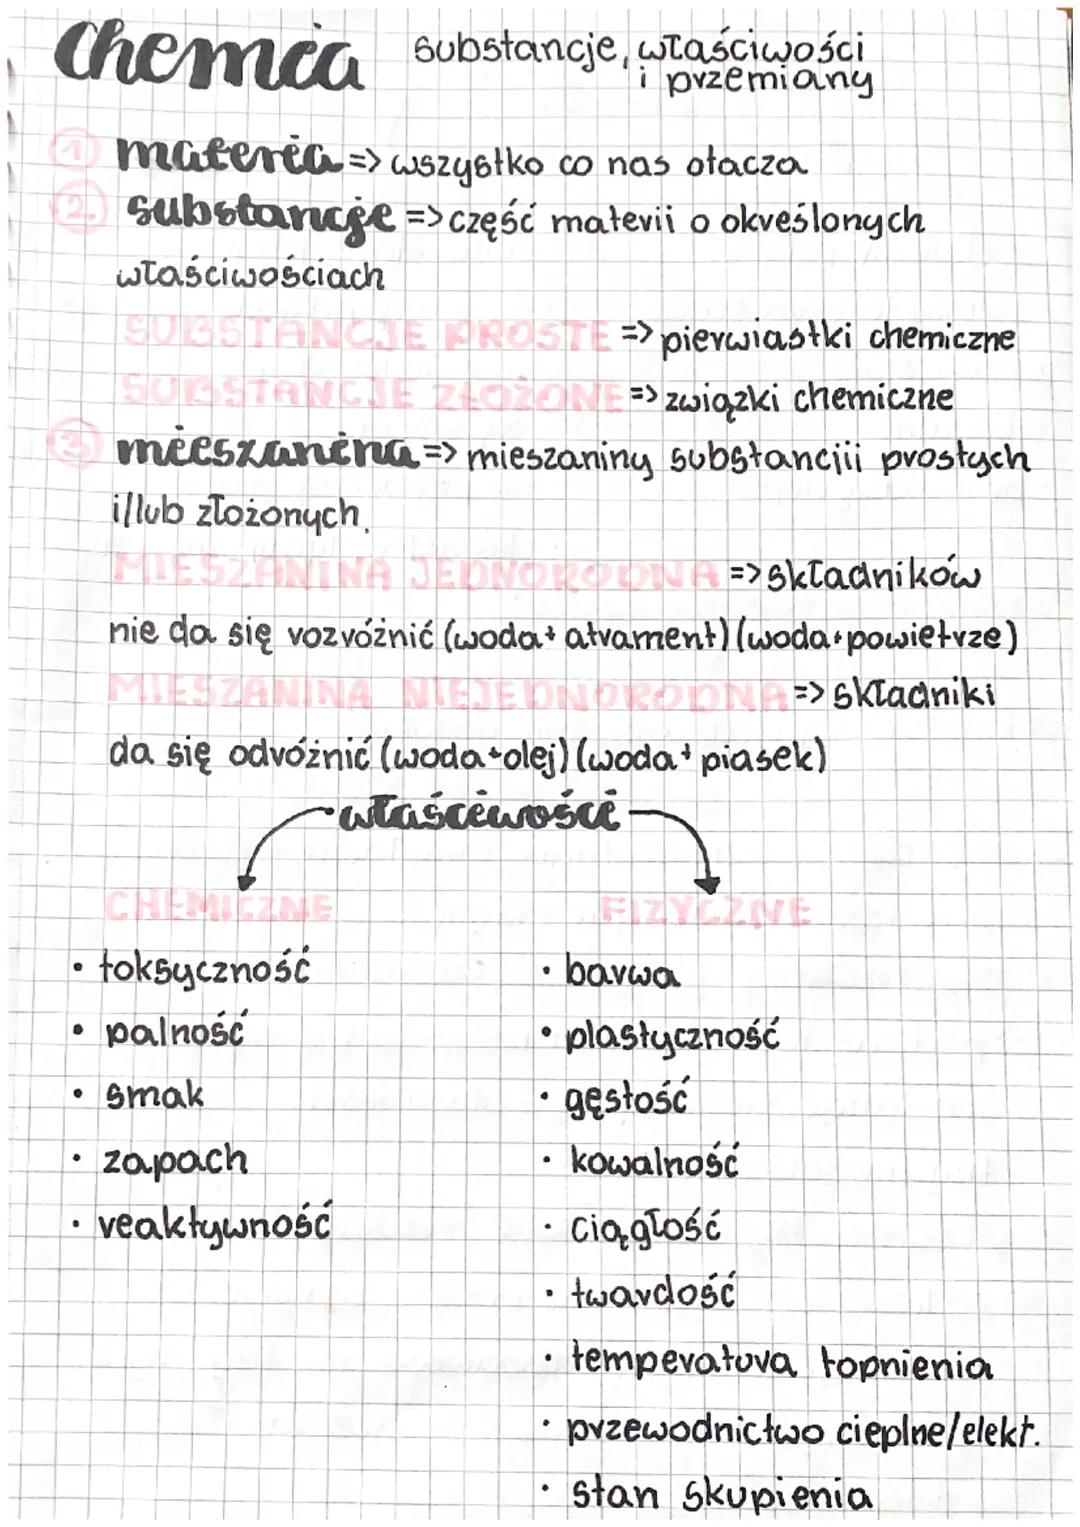 chemia substancje, właściwości
i przemiany
1 materia => wszystko co nas otacza
2. substancje => część materii o określonych
właściwościach
SUBSTANCJE PROSTE => pierwiastki chemiczne
SUBSTANCJE ZŁOŻONE => związki chemiczne
3 mieszanina => mieszaniny substancjii prostych
i/lub złożonych.
MIESZANINA JEDNORODNA => składników
nie da się rozróżnić (woda+ atrament) (woda+powietrze)
MIESZANINA NIEJEDNORODNA => składniki
da się odróżnić (woda+olej) (woda+ piasek)
właściwości
CHEMICZNE FIZYCZNE
• toksyczność • barwa
• palność • plastyczność
• smak • gęstość
• zapach • kowalność
• reaktywność • ciągłość
• twardość
• temperatura topnienia
• przewodnictwo cieplne/elekt.
• stan skupienia